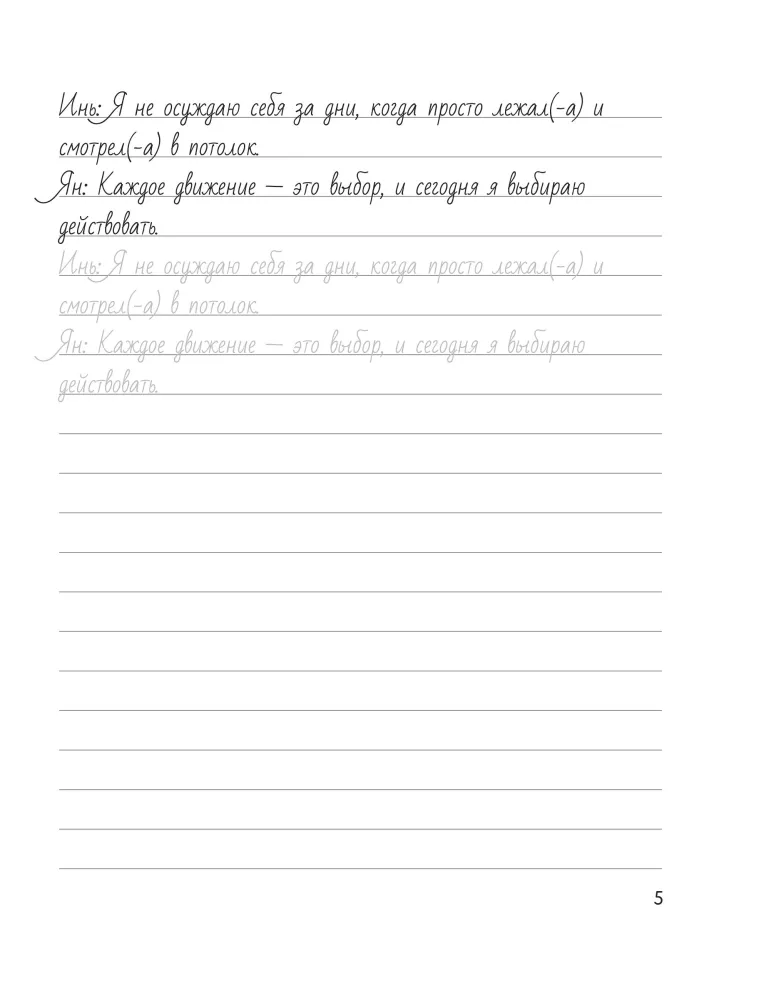 Инь: Я не осуждаю себя за дни, когда просто лежал(-а) и
смотрел(-а) в потолок.
Ян: Каждое движение — это выбор, и сегодня я выбираю
действовать.
Инь: Я не осуждаю себя за дни, когда просто лежал(-а) и
смотрел(-а) в потолок.
Ян: Каждое движение — это выбор, и сегодня я выбираю
действовать.
5